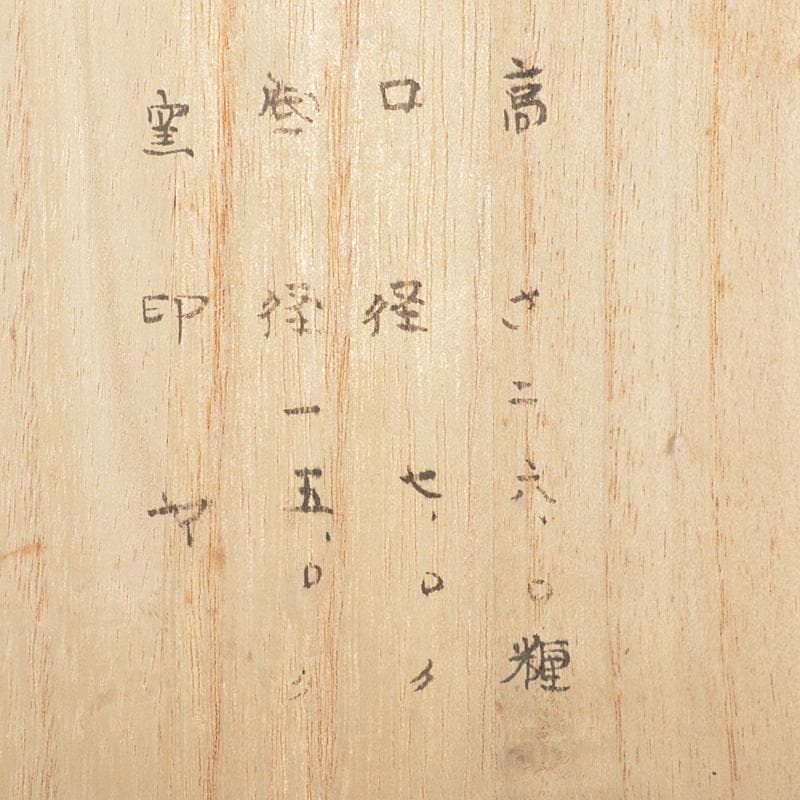 高さ二六.〇糎
口径七.〇〃
径一五.〇〃
窯印ヤ